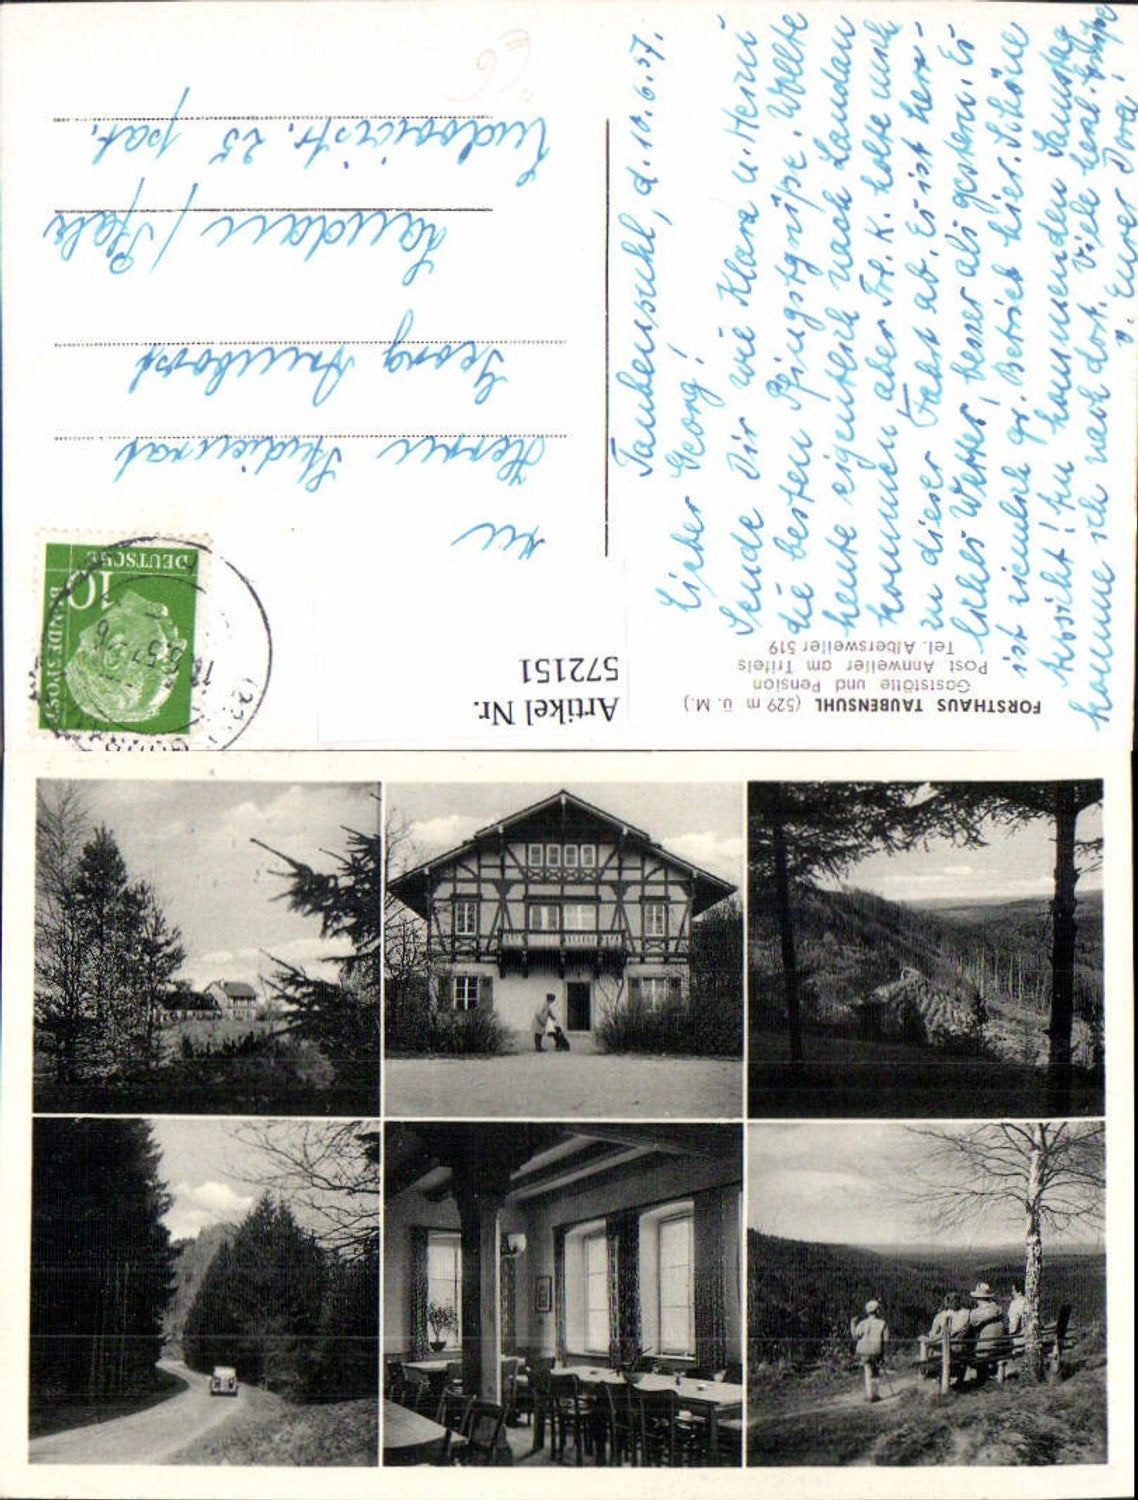 FORSTHAUS TAUBENSUHL (529 m ü. M.)
Gaststätte und Pension
Post Annweiler am Trifels
Tel. Albersweiler 519
Artikel Nr.
572151
DEUTSCHE
BUNDESPOST
10
Taubensuhl, d. 10.6.57.
Lieber Georg!
Sende Dir wie Klara u. Heini
die besten Pfingstgrüße. Wollte
heute eigentlich nach Landau
kommen aber Frl. K. holte mich
zu dieser Fahrt ab. Es ist herr-
liches Wetter, besser als gestern. Es
ist ziemlich gr. Betrieb hier. Schöne
Aussicht! Am kommenden Samstag
komme ich nach dort. Viele herzl. Grüße
v. Eurer Dora!
An
Herrn Studienrat
Georg
Landau / Pfalz
Ludowicistr. 25 part.